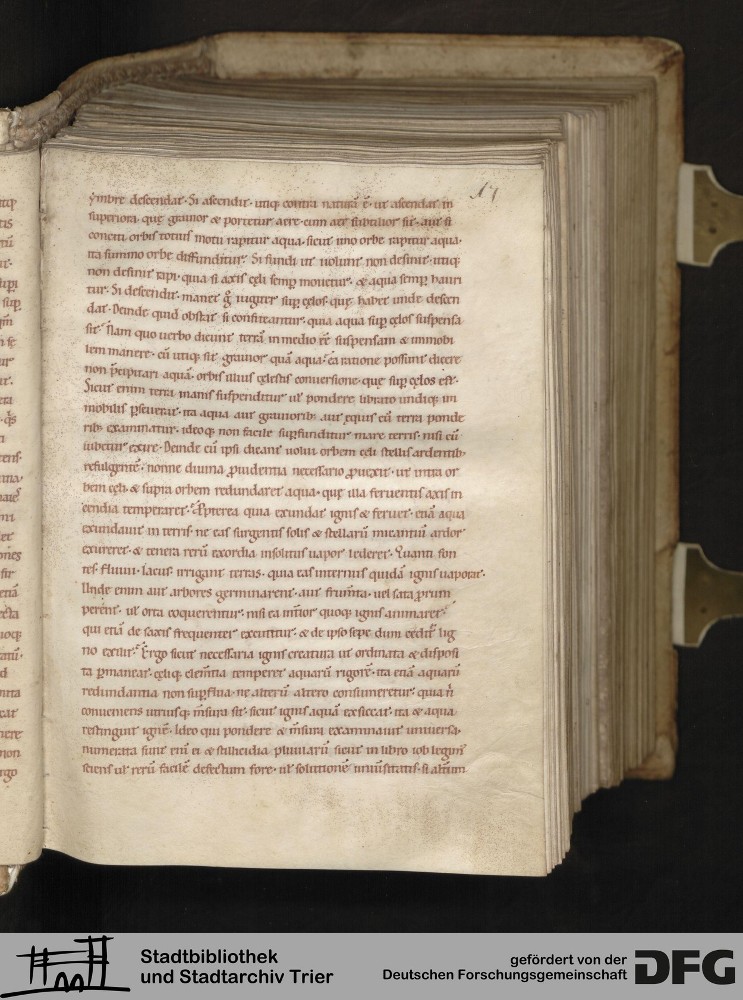 17
ymbre descendat. Si ascendit. utiq; contra naturā ē. ut ascendat in
superiora. quę grauior & portetur aere. cum aer subtilior sit. aut si
conciti orbis totius motu rapitur aqua. sicut imo orbe rapitur aqua.
ita summo orbe diffunditur. Si fundi ut uolunt non desinit. utiq;
non desinit rapi. quia si axis cęli semp mouetur. & aqua semp hauri
tur. Si descendit. manet g iugiter sup cęlos. quę habet unde descen
dat. Deinde quid obstat si confiteantur. quia aqua sup cęlos suspensa
sit. Nam quo uerbo dicunt terrā in medio eē suspensam & immobi
lem manere. cū utiq; sit grauior quā aqua. ea ratione possunt dicere
non p̄cipitari aquā. orbis illius cęlestis conuersione. que sup cęlos est.
Sicut enim terra inanis suspenditur ut pondere librato undiq; im
mobilis pseuerat. ita aqua aut grauiorib; aut equis cū terra ponde
rib; examinatur. ideoq; non facile supfunditur mare terris. nisi cū
iubetur exire. Deinde cū ipsi dicant uolui orbem cęli stellis ardentib;
refulgentē. nonne diuina puidentia necessario pspexit. ut intra or
bem cęli & supra orbem redundaret aqua. quę illa feruentis axis in
cendia temperaret. Ppterea quia exundat ignis & feruet. etiā aqua
exundauit in terris. ne eas surgentis solis & stellarū micantiū ardor
exureret. & tenera rerū exordia insolitus uapor lederet. Quanti fon
tes. fluuii. lacus. irrigant terras. quia eas internus quidā ignis uaporat.
Unde enim aut arbores germinarent. aut frumta. uel sata prum
perent. ut orta coquerentur. nisi ea interior quoq; ignis animaret.
qui etiā de saxis frequenter excutitur. & de ipso sepe dum cedit lig
no exilit. Ergo sicut necessaria ignis creatura ut ordinata & disposi
ta pmaneat. cęliq; clemtia temperet aquarū rigorē. ita etiā aquarū
redundantia non supflua. ne alterū altero consumeretur. quia n̄
conueniens utriusq; mensura sit. sicut ignis aquā exsiccat. ita & aqua
restinguit ignē. Ideo qui pondere & mensura examinauit uniuersa.
numerata sunt eni ei & stillicidia pluuiarū sicut in libro iob legim
sciens ut rerū facilē defectum fore. ut solutionē uniuersitatis. si alterum
Stadtbibliothek
und Stadtarchiv Trier
gefördert von der
Deutschen Forschungsgemeinschaft
DFG